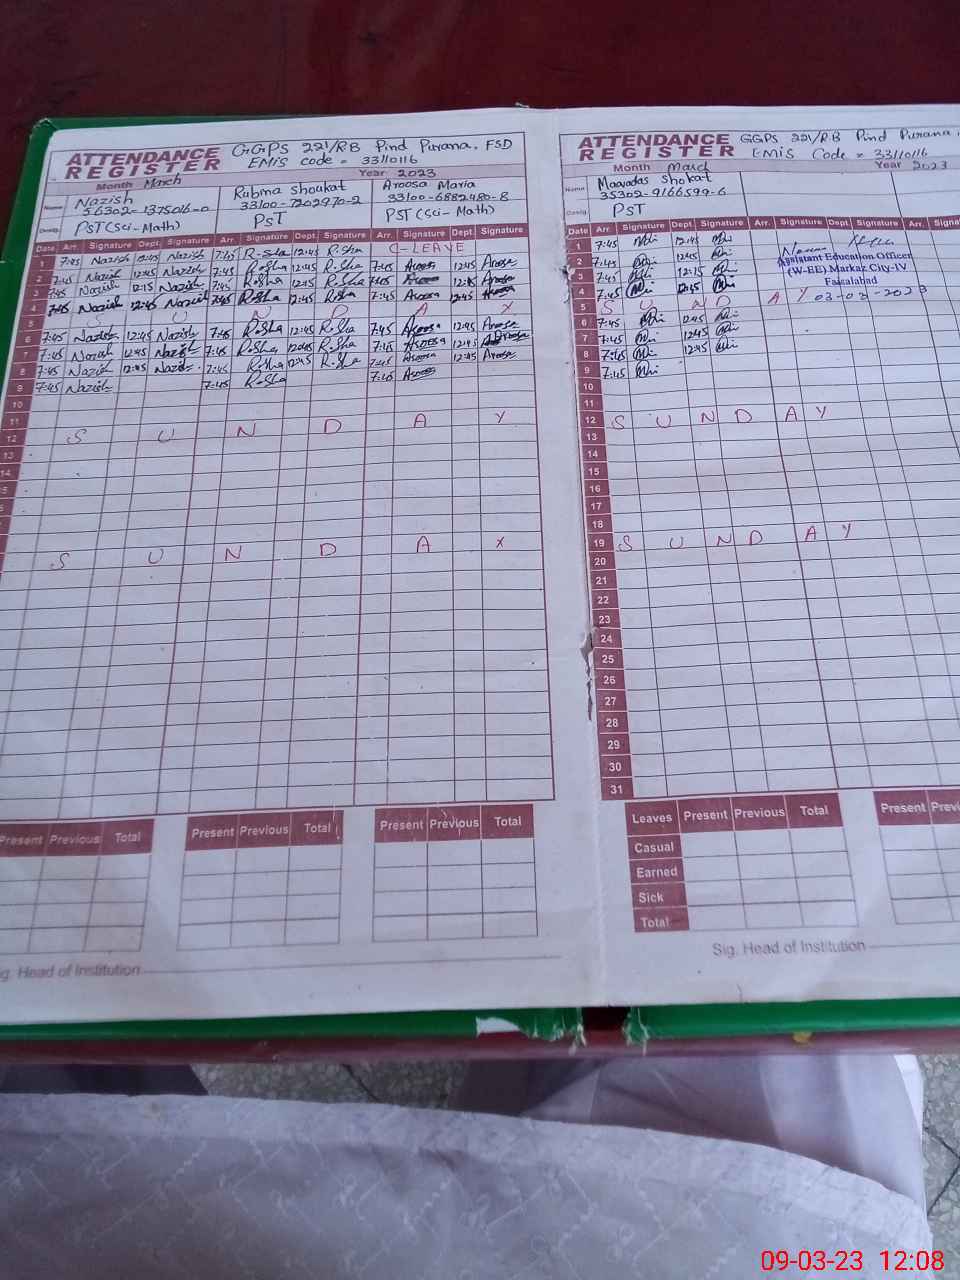 ATTENDANCE REGISTER
GGPS 221/RB Pind Purana, FSD
EMIS code = 33110116
Month March
Year 2023
Name
Nazish
56302-1375016-0
Rubma Shoukat
33100-7202970-2
Aroosa Maria
33100-6882480-8
Desig.
PST (Sci-Math)
PST
PST (Sci-Math)
Date Arr. Signature Dept. Signature Arr. Signature Dept. Signature Arr. Signature Dept. Signature
1 7:45 Nazish 12:45 Nazish 7:45 R-Sha 12:45 R.Sha C-LEAVE
2 7:45 Nazish 12:45 Nazish 7:45 R.Sha 12:45 R.Sha 7:45 Aroosa 12:45 Aroosa
3 7:45 Nazish 12:15 Nazish 7:45 R.Sha 12:15 R.Sha 7:45 Aroosa 12:15 Aroosa
4 7:45 Nazish 12:45 Nazish 7:45 R.Sha 12:45 R.Sha 7:45 Aroosa 12:45 Aroosa
5 S U N D A Y
6 7:45 Nazish 12:45 Nazish 7:45 R.Sha 12:45 R.Sha 7:45 Aroosa 12:45 Aroosa
7 7:45 Nazish 12:45 Nazish 7:45 R.Sha 12:45 R.Sha 7:45 Aroosa 12:45 Aroosa
8 7:45 Nazish 12:45 Nazish 7:45 R.Sha 12:45 R.Sha 7:45 Aroosa 12:45 Aroosa
9 7:45 Nazish 7:45 R.Sha 7:45 Aroosa
10
11
12 S U N D A Y
13
14
S U N D A Y
Present Previous Total
Present Previous Total
Present Previous Total
Sig. Head of Institution
ATTENDANCE REGISTER
GGPS 221/RB Pind Purana,
EMIS Code = 33110116
Month March
Year 2023
Name
Shokat
35302-9166599-6
Desig.
PST
Date Arr. Signature Dept. Signature Arr. Signature Dept Signature Arr. Signature
1 7:45 12:45
2 7:45 12:45
3 7:45 12:15
4 7:45 12:45
Assistant Education Officer
(W-EE) Markaz City-IV
Faisalabad
03-03-2023
5 S U N D A Y
6 7:45 12:45
7 7:45 12:45
8 7:45 12:45
9 7:45
10
11
12 S U N D A Y
13
14
15
16
17
18
19 S U N D A Y
20
21
22
23
24
25
26
27
28
29
30
31
Leaves Present Previous Total
Casual
Earned
Sick
Total
Present
Sig. Head of Institution
09-03-23 12:08